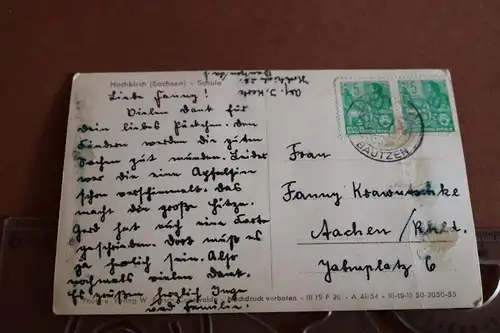 Hochkirch (Sachsen) - Schule
Liebe Fanny!
Vielen Dank für
dein liebes Päckchen. Den
Kindern werden die guten
Sachen gut munden. Leider
war die eine Apfelsine
schon verschimmelt. Das
macht die große Hitze.
Gerd hat mir eine Karte
geschrieben. Dort muß es
ja herrlich sein. Also
nochmals vielen Dank.
Es grüßen herzlich Inge
und Familie.
5
5
BAUTZEN
Frau
Fanny Krawutschke
Aachen / Rhld.
Jahnplatz 6
Nachdruck verboten - III 19 F 20 - A 41/54 - III-19-11 50-2050-55